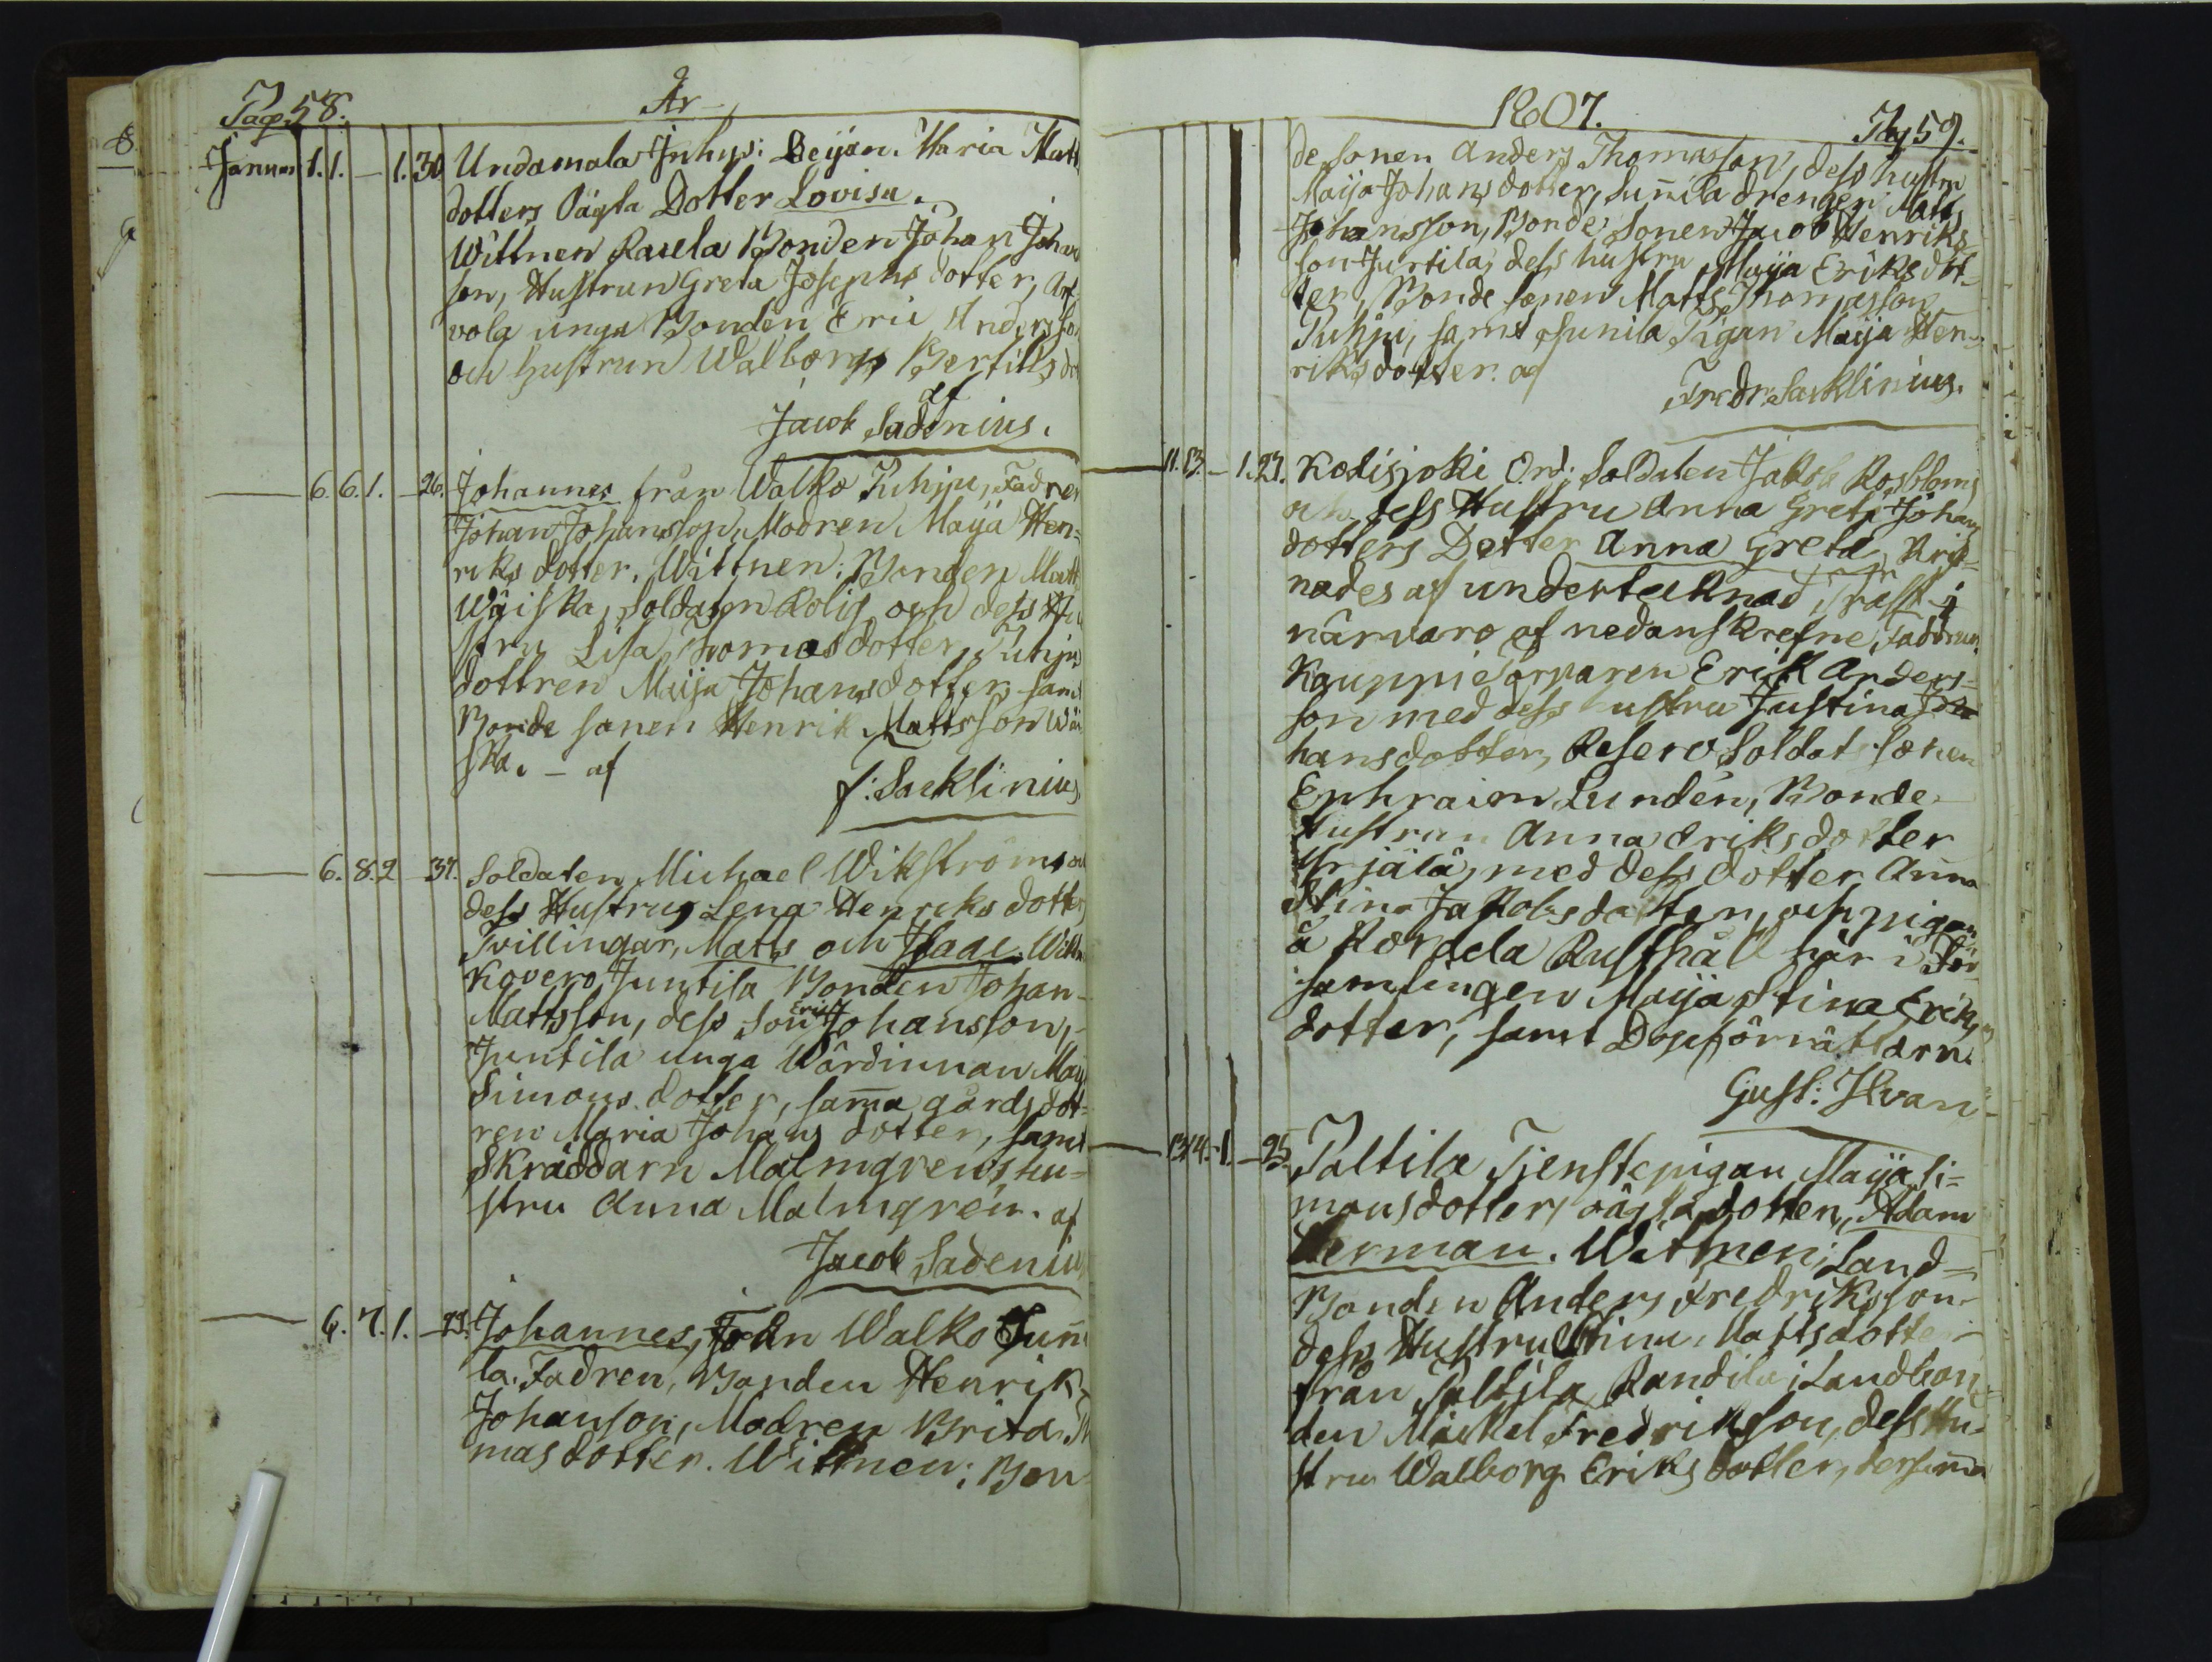 Pag. 58.
År
Januar 1. 1. — 1. 30 Undamala Inhys: Beijan. Maria Matt
dotters Oägta Dotter Lovisa.
Wittnen Rasela Bonden Johan Johan
son, Hustrun Greta Josephs dotter, Ar
vola unga Bonden Eric Andersson
och hustrun Walborg Bertills dot
af
Jacob Sadenius.
6. 6. 1. — 26. Johannes från Walko Juhju, Fadren
Johan Johansson, Modren Maija Hen=
riks dotter. Wittnen: Bonden Matt
Wäiska, Soldaten Rolig och dess Hu
stru Lisa Thomasdotter, Juhju
dottren Maija Johansdotter samt
Bonde sonen Henrik Mattsson Wäi
ska. — af
f: Sacklinius
6. 8. 2 — 37. Soldaten Michael Wikströms och
dess Hustrus Lena Henriks dotters
Tvillingar, Matts och Isaac. Wittn
Kovero Juntila Bonden Johan
Mattsson, dess Son Eric Johansson,
Juntila unga Wärdinnan Maij
Simons dotter, sam̄a gårds dot=
ren Maria Johans dotter, samt
Skräddarn Malmgrens hu=
stru Anna Malmgren. af
Jacob Sadenius
6. 7. 1. — 29. Johannes, från Walko Sun̄i
la. Fadren, Bonden Henrik
Johanson, Modren Brita Th
mas dotter. Wittnen: Bon
1807.
Pag 59.
de sonen Anders Thomasson, dess hustru
Maija Johans dotter, Sun̄ila drengen Matts
Johansson, Bonde Sonen Jacob Henriks
son Jurtila, dess hustru Maija Eriks dot=
ter, Bonde sonen Matts Thomasson
Juhju, samt Sunila Pigan Maija Hen=
riks dotter. af
Fredr. Sacklinius.
11. 13. — 1. 23. Kodisjoki Ord: Soldaten Jakob Rosbloms
och dess Hustru Anna Greta Johans
dotters Dotter Anna Greta, Krist=
nades af undertecknad, i
närvaro af nedanskrefne Faddrar.
Kauppi Torparen Erik Anders=
son med dess hustru Justina Jo
hansdotter, Reserv Soldats sonen
Ephraim Lundén, Bonde
Hustrun Anna Eriksdotter
Yrjälä, med dess dotter Anna
Stina Jakobsdotter, och pigan
å Kordela Rusthåll här i För
samlingen Maija Stina Eriks
dotter, samt Dopförrättarn.
Gust: Ilvan
13. 14. 1. — 25. Paltila Tjenstepigan Maija Si=
mons dotters oägta dotter, Adam
Herman. Wittnen; Land=
Bonden Anders Fredriksson
dess Hustru Stina Mattsdotter
från Paltila Randila; Landbon
den Mickel Fredrikson, dess Hu
stru Walborg Eriks dotter, dersam̄a